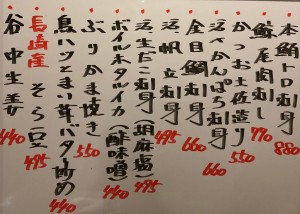 本鮪トロ刺身 880
鯨尾肉刺し 990
かつお土佐造り 550
活〆かんぱち刺身 660
金目鯛刺身 660
活帆立刺身 495
活生だこ刺身(胡麻塩) 495
ボイルホタルイカ(酢味噌) 440
ぶりかま焼き 550
鳥ハツとまい茸バタ炒め 440
長崎産 そら豆 495
谷中生姜 440